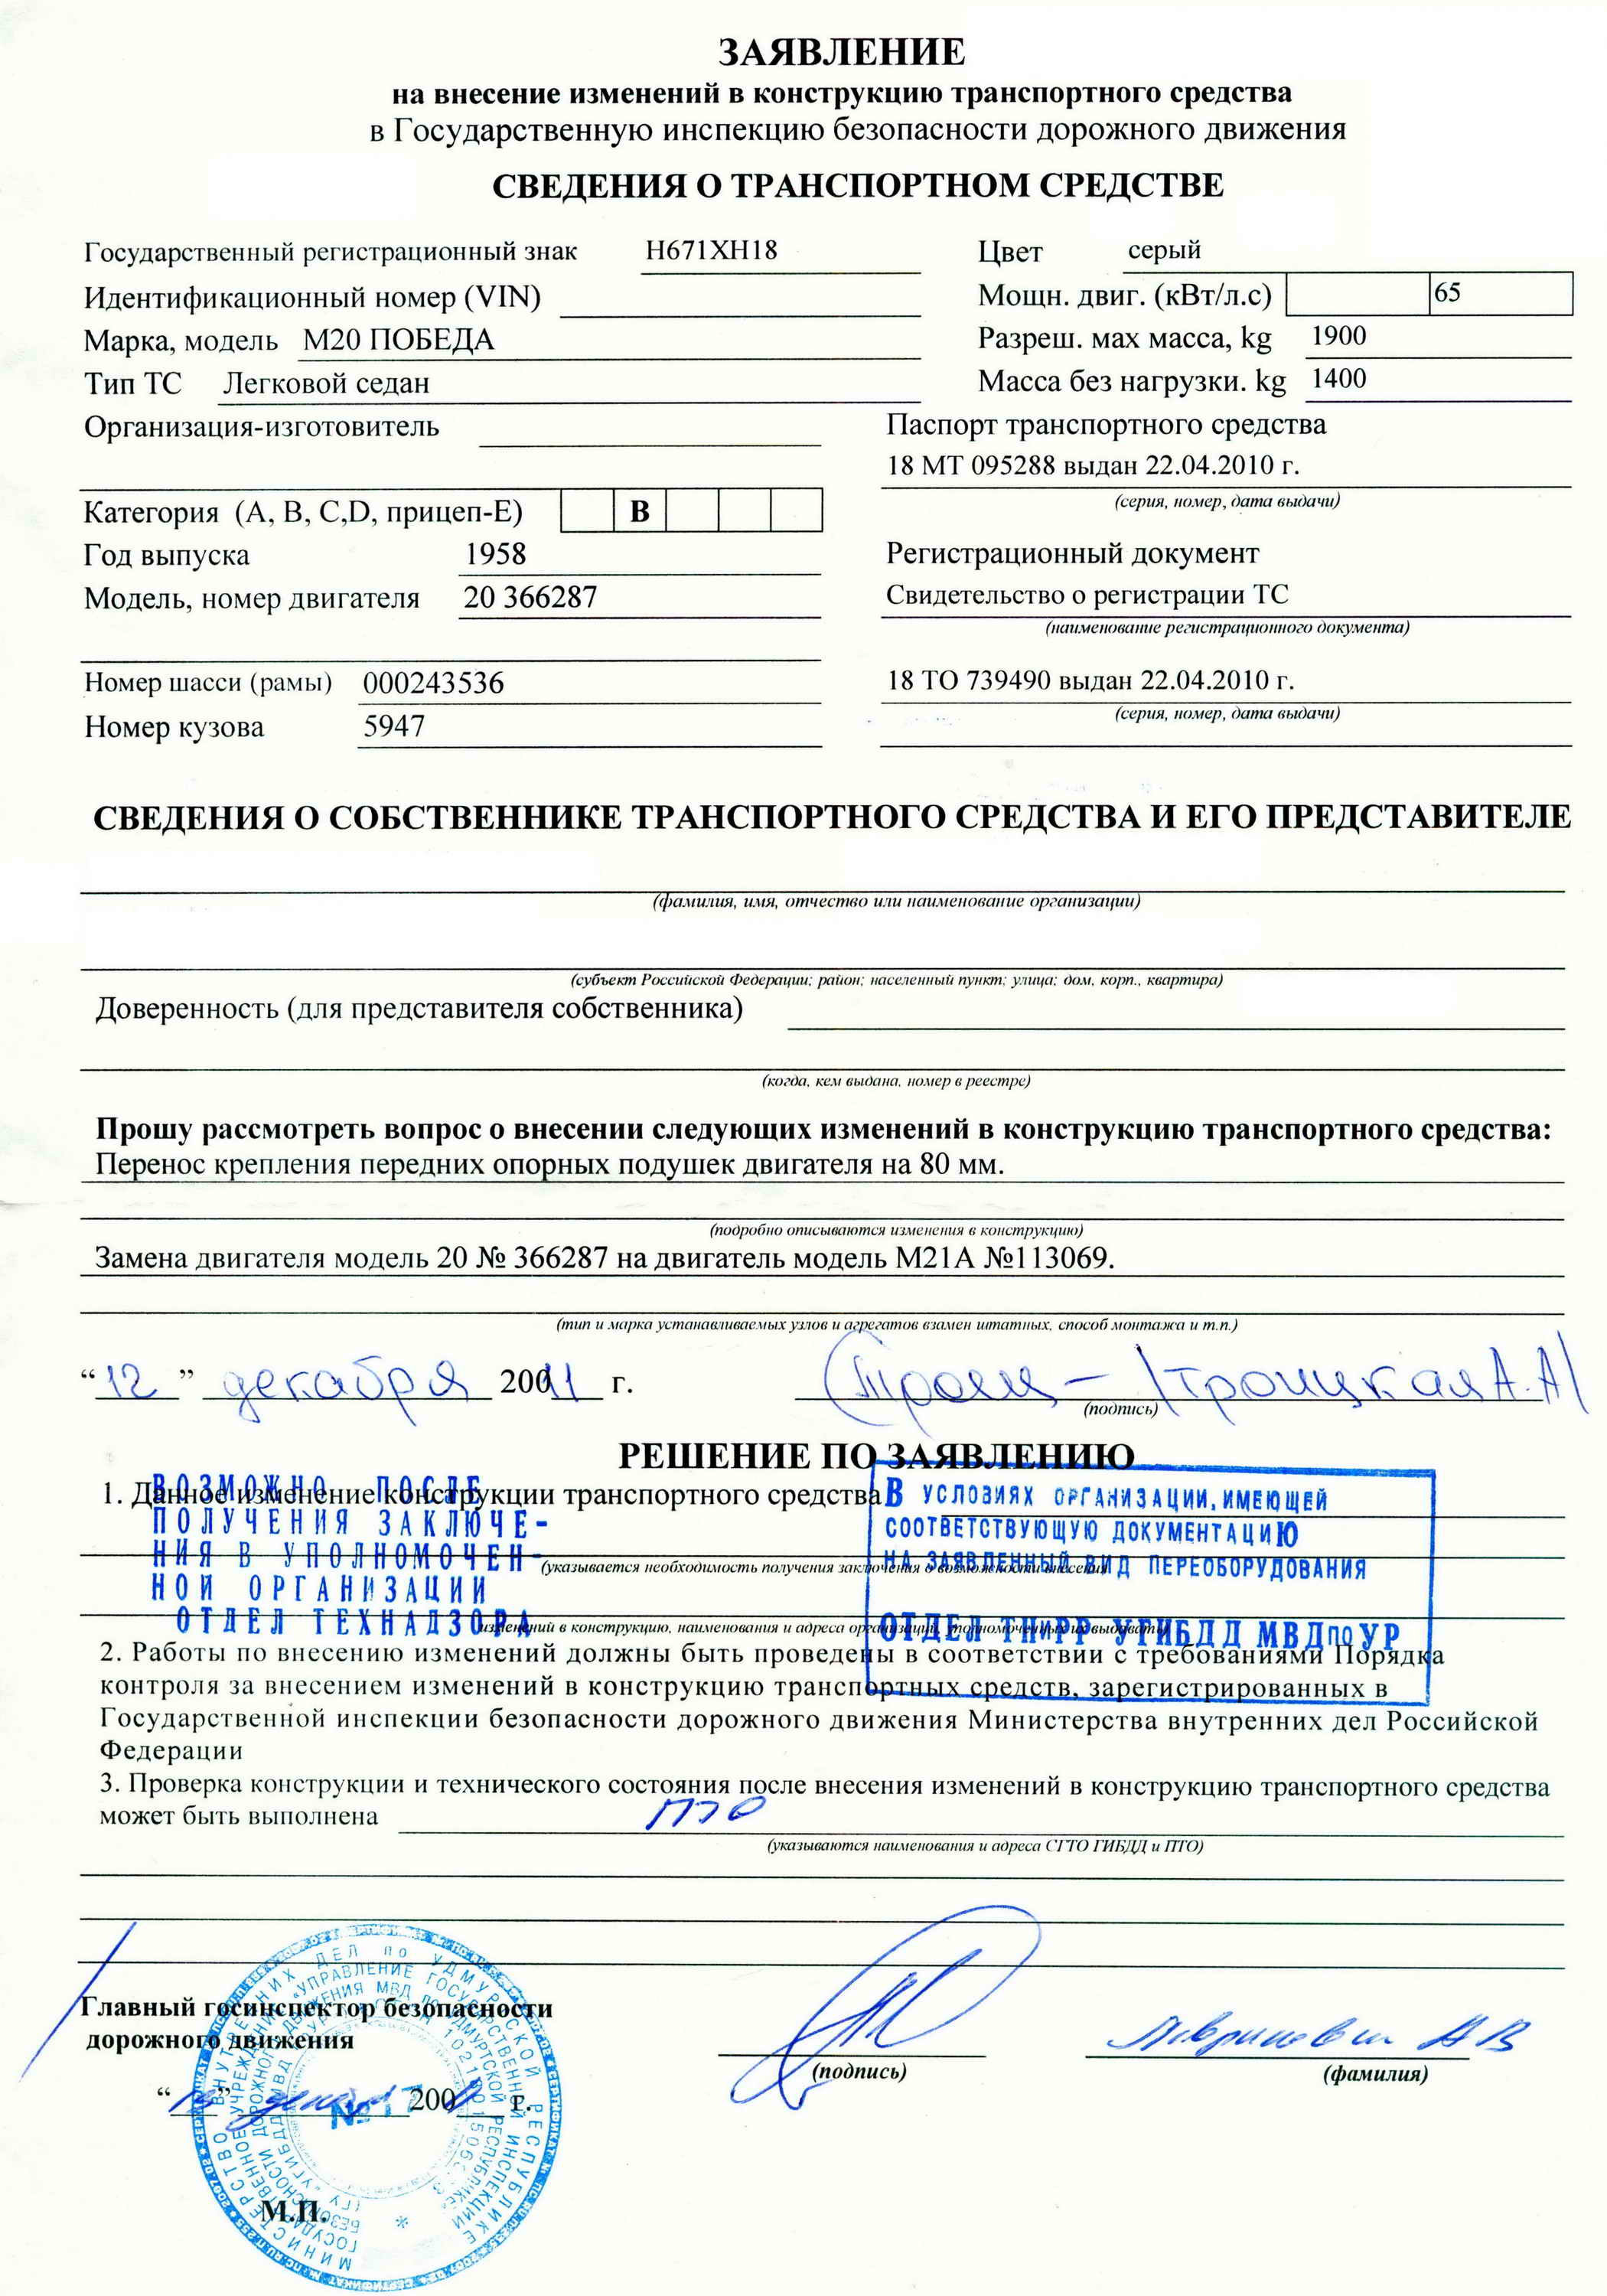 ЗАЯВЛЕНИЕ
на внесение изменений в конструкцию транспортного средства
в Государственную инспекцию безопасности дорожного движения
СВЕДЕНИЯ О ТРАНСПОРТНОМ СРЕДСТВЕ
Государственный регистрационный знак Н671ХН18
Цвет серый
Идентификационный номер (VIN)
Мощн. двиг. (кВт/л.с) 65
Марка, модель М20 ПОБЕДА
Разреш. мах масса, kg 1900
Тип ТС Легковой седан
Масса без нагрузки. kg 1400
Организация-изготовитель
Паспорт транспортного средства
18 МТ 095288 выдан 22.04.2010 г.
(серия, номер, дата выдачи)
Категория (А, В, С,D, прицеп-Е) В
Год выпуска 1958
Регистрационный документ
Модель, номер двигателя 20 366287
Свидетельство о регистрации ТС
(наименование регистрационного документа)
Номер шасси (рамы) 000243536
18 ТО 739490 выдан 22.04.2010 г.
(серия, номер, дата выдачи)
Номер кузова 5947
СВЕДЕНИЯ О СОБСТВЕННИКЕ ТРАНСПОРТНОГО СРЕДСТВА И ЕГО ПРЕДСТАВИТЕЛЕ
(фамилия, имя, отчество или наименование организации)
(субъект Российской Федерации; район; населенный пункт; улица; дом, корп., квартира)
Доверенность (для представителя собственника)
(когда, кем выдана, номер в реестре)
Прошу рассмотреть вопрос о внесении следующих изменений в конструкцию транспортного средства:
Перенос крепления передних опорных подушек двигателя на 80 мм.
(подробно описываются изменения в конструкцию)
Замена двигателя модель 20 № 366287 на двигатель модель М21А №113069.
(тип и марка устанавливаемых узлов и агрегатов взамен штатных, способ монтажа и т.п.)
“12” декабря 20011 г. /Троицкая А.А/
(подпись)
РЕШЕНИЕ ПО ЗАЯВЛЕНИЮ
1. Данное изменение конструкции транспортного средства
ВОЗМОЖНО ПОСЛЕ
ПОЛУЧЕНИЯ ЗАКЛЮЧЕ-
НИЯ В УПОЛНОМОЧЕН-
НОЙ ОРГАНИЗАЦИИ
ОТДЕЛ ТЕХНАДЗОРА
В УСЛОВИЯХ ОРГАНИЗАЦИИ, ИМЕЮЩЕЙ
СООТВЕТСТВУЮЩУЮ ДОКУМЕНТАЦИЮ
НА ЗАЯВЛЕННЫЙ ВИД ПЕРЕОБОРУДОВАНИЯ
ОТДЕЛ ТНиРР УГИБДД МВДпоУР
(указывается необходимость получения заключения о возможности внесения
изменений в конструкцию, наименования и адреса организаций, уполномоченных их выдавать)
2. Работы по внесению изменений должны быть проведены в соответствии с требованиями Порядка
контроля за внесением изменений в конструкцию транспортных средств, зарегистрированных в
Государственной инспекции безопасности дорожного движения Министерства внутренних дел Российской
Федерации
3. Проверка конструкции и технического состояния после внесения изменений в конструкцию транспортного средства
может быть выполнена ПТО
(указываются наименования и адреса СГТО ГИБДД и ПТО)
Главный госинспектор безопасности
дорожного движения
(подпись)
(фамилия)
“ ” 200 г.
№17
М.П.
МИНИСТЕРСТВО ВНУТРЕННИХ ДЕЛ ПО УДМУРТСКОЙ РЕСПУБЛИКЕ